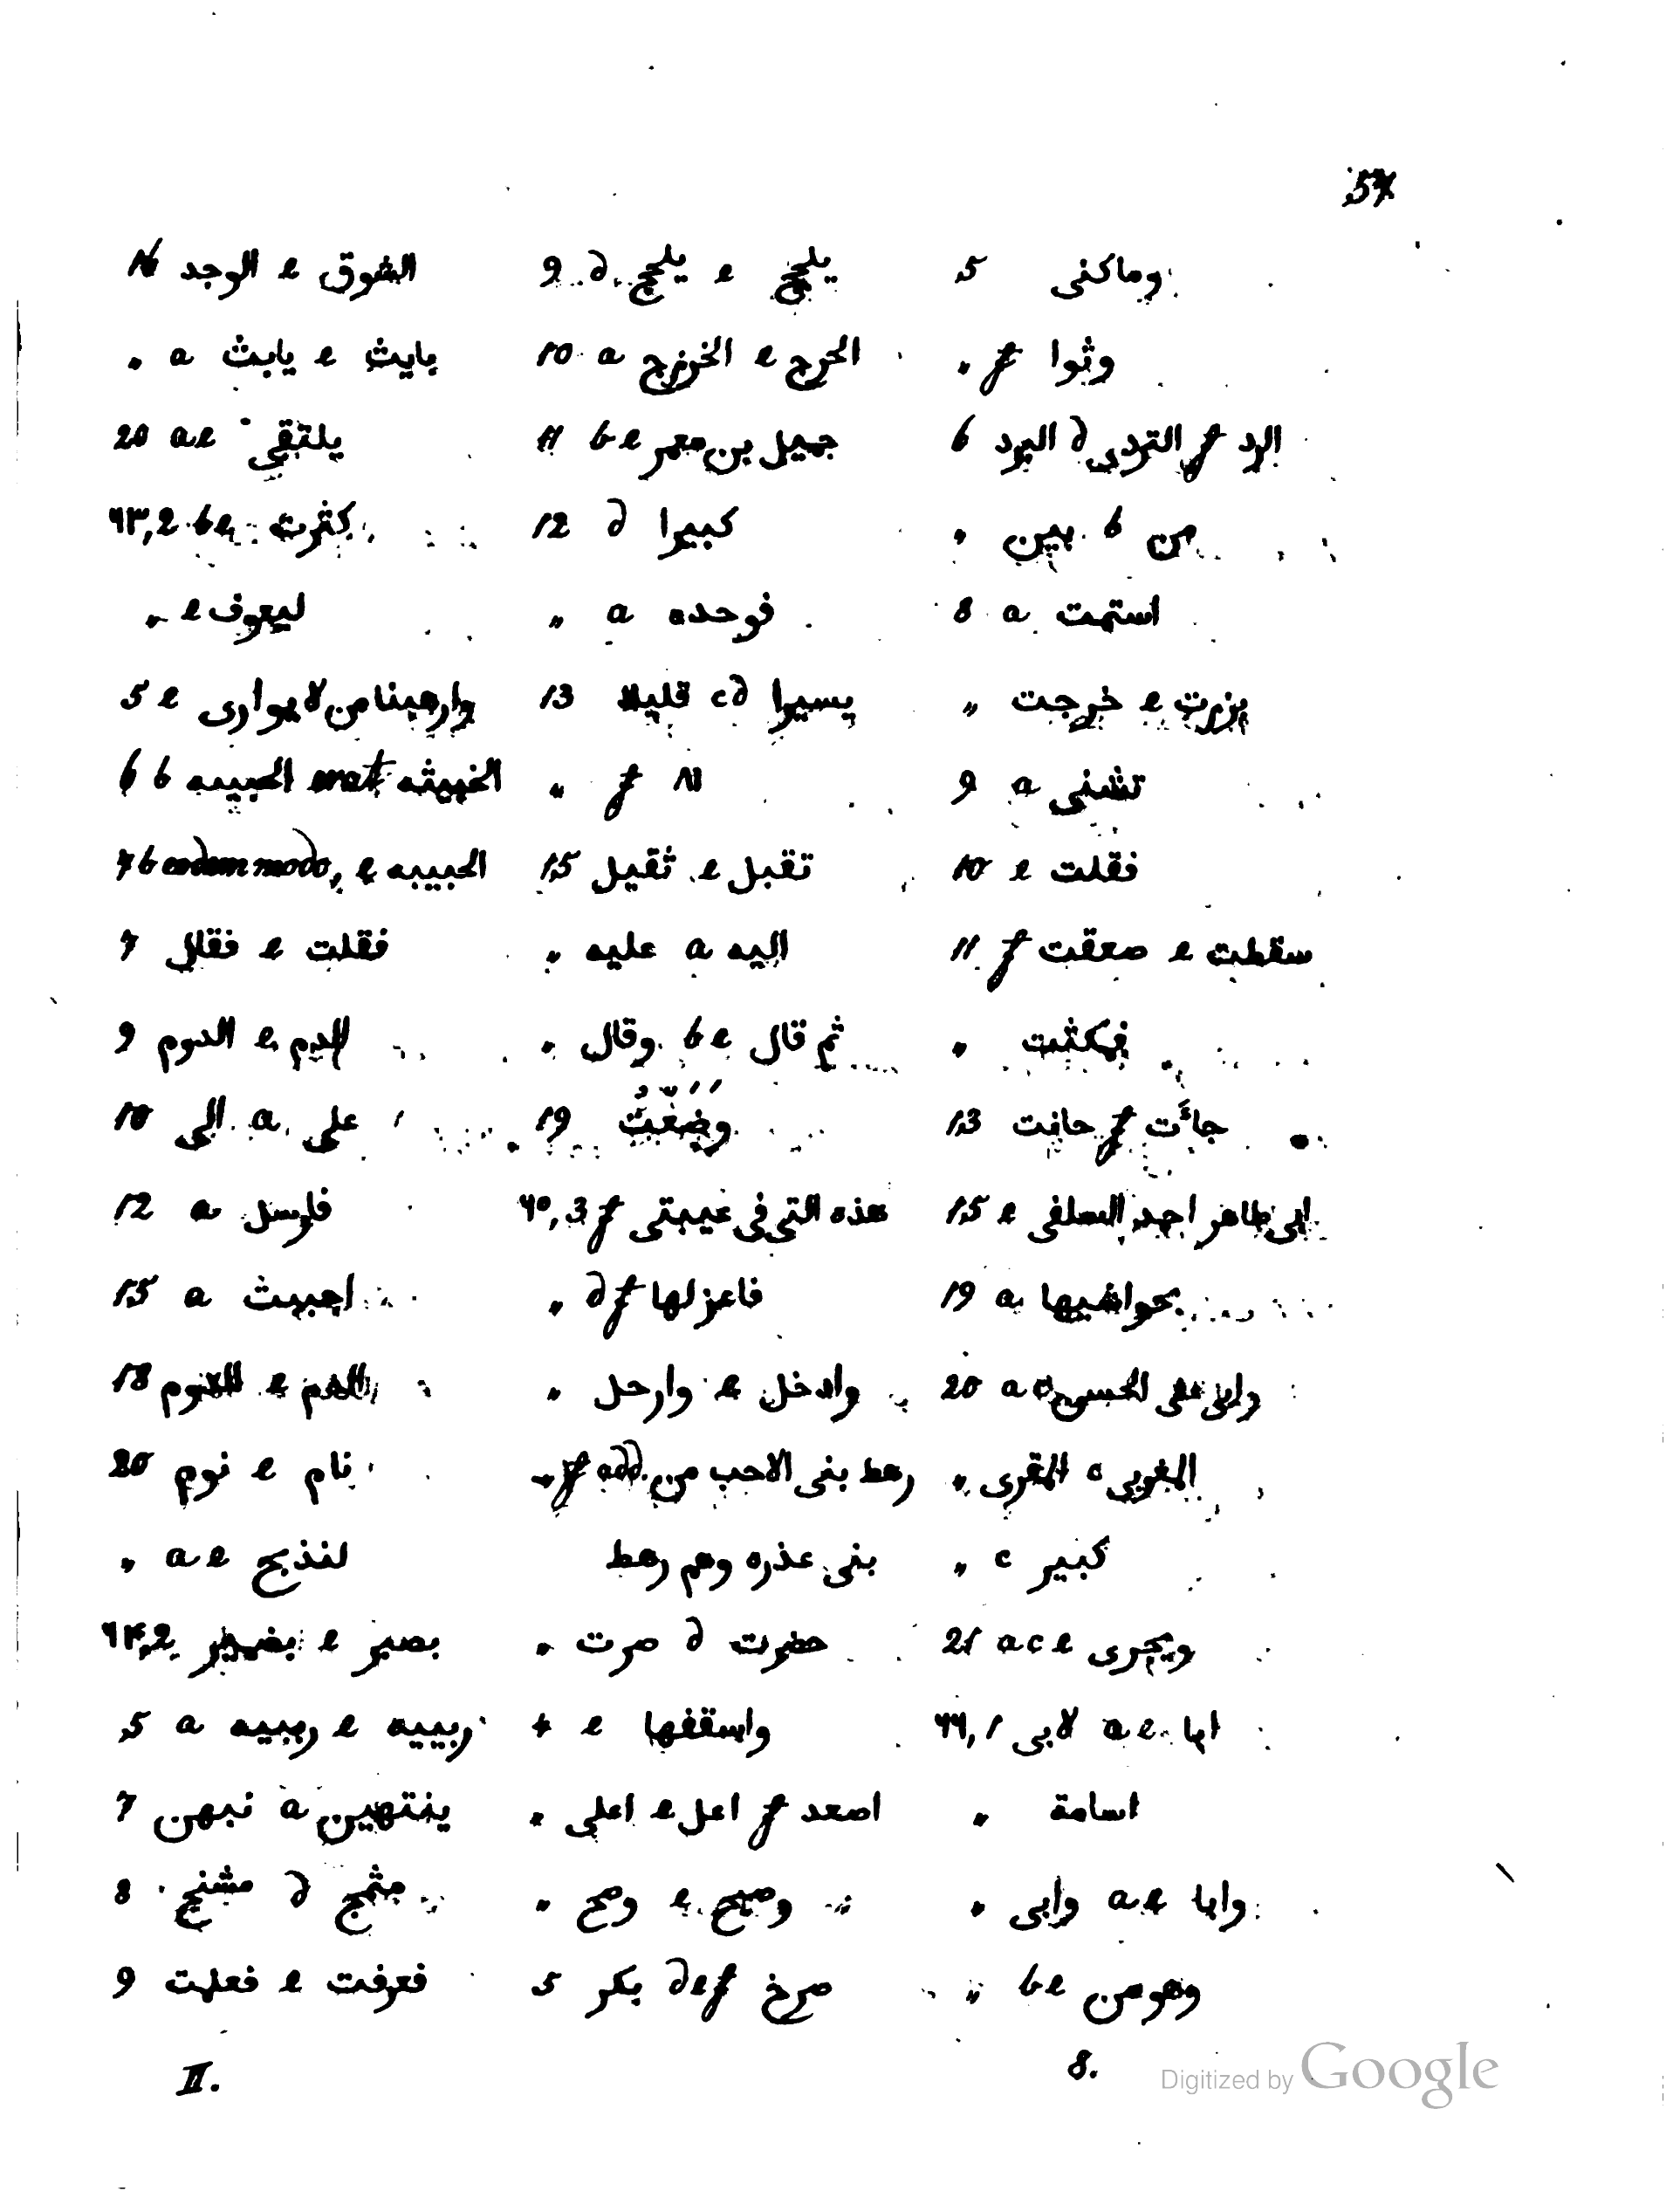 57
وماكنى 5
وثوا f „
الرد f التردى d البرد 6
من b بين „
استمت a 8
بزرت e خرجت „
تشنى a 9
فقلت e 10
سقطت e صعقت f 11
فمكثت „
جاءت f حانت 13
ابى طاهر احمد السلفى e 15
بحواشيها a 19
وابى على الحسن ac 20
المغربى c المقرى „
كبير c „
ويجرى ace 21
ابا ae لابى ٦٦,1
اسامة „
وابا ae وابى „
وهو من be „
8.
يلجج e يلجج d 9
الخرج e الخزرج a 10
جميل بن معمر be 11
كبيرا d 12
فوحده a „
يسيرا cd قليلا 13
f 14 „
تقبل e ثقيل 15
اليه a عليه „
ثم قال be وقال „
وَضَعَّتُ 19
هذه التى فى عيبتى f ٦٥,3
فاعزلها df „
وادخل e وارحل „
رهط بنى الاحب من f add. „
بنى عذره وهم رهط
حضرت d صرت „
واسقفها e 4
اصعد f اعل e اعلى „
وصبح e وصح „
صرخ def بكر 5
الشوق e الوجد 16
بايث e يابث a „
يلتقى ae 20
كثرت be ٦٣,2
ليعوف e „
وارهبنا من لا يوارى e 5
الخبيثه mat الحبيبه b 6
الحبيبه e, b eodem modo 7
فقلت e فقال 7
الدم e الدوم 9
على a الى 10
فارسل a 12
احببت a 15
اللهم e اللنوم 18
نام e نوم 20
لنذبح ae „
بصير e بضمير ٦٤,2
ربيبه e رببيه a 5
ينتهين a نبهن 7
مثمج d مشنج 8
فعرفت e فعلمت 9
II.
Digitized by Google